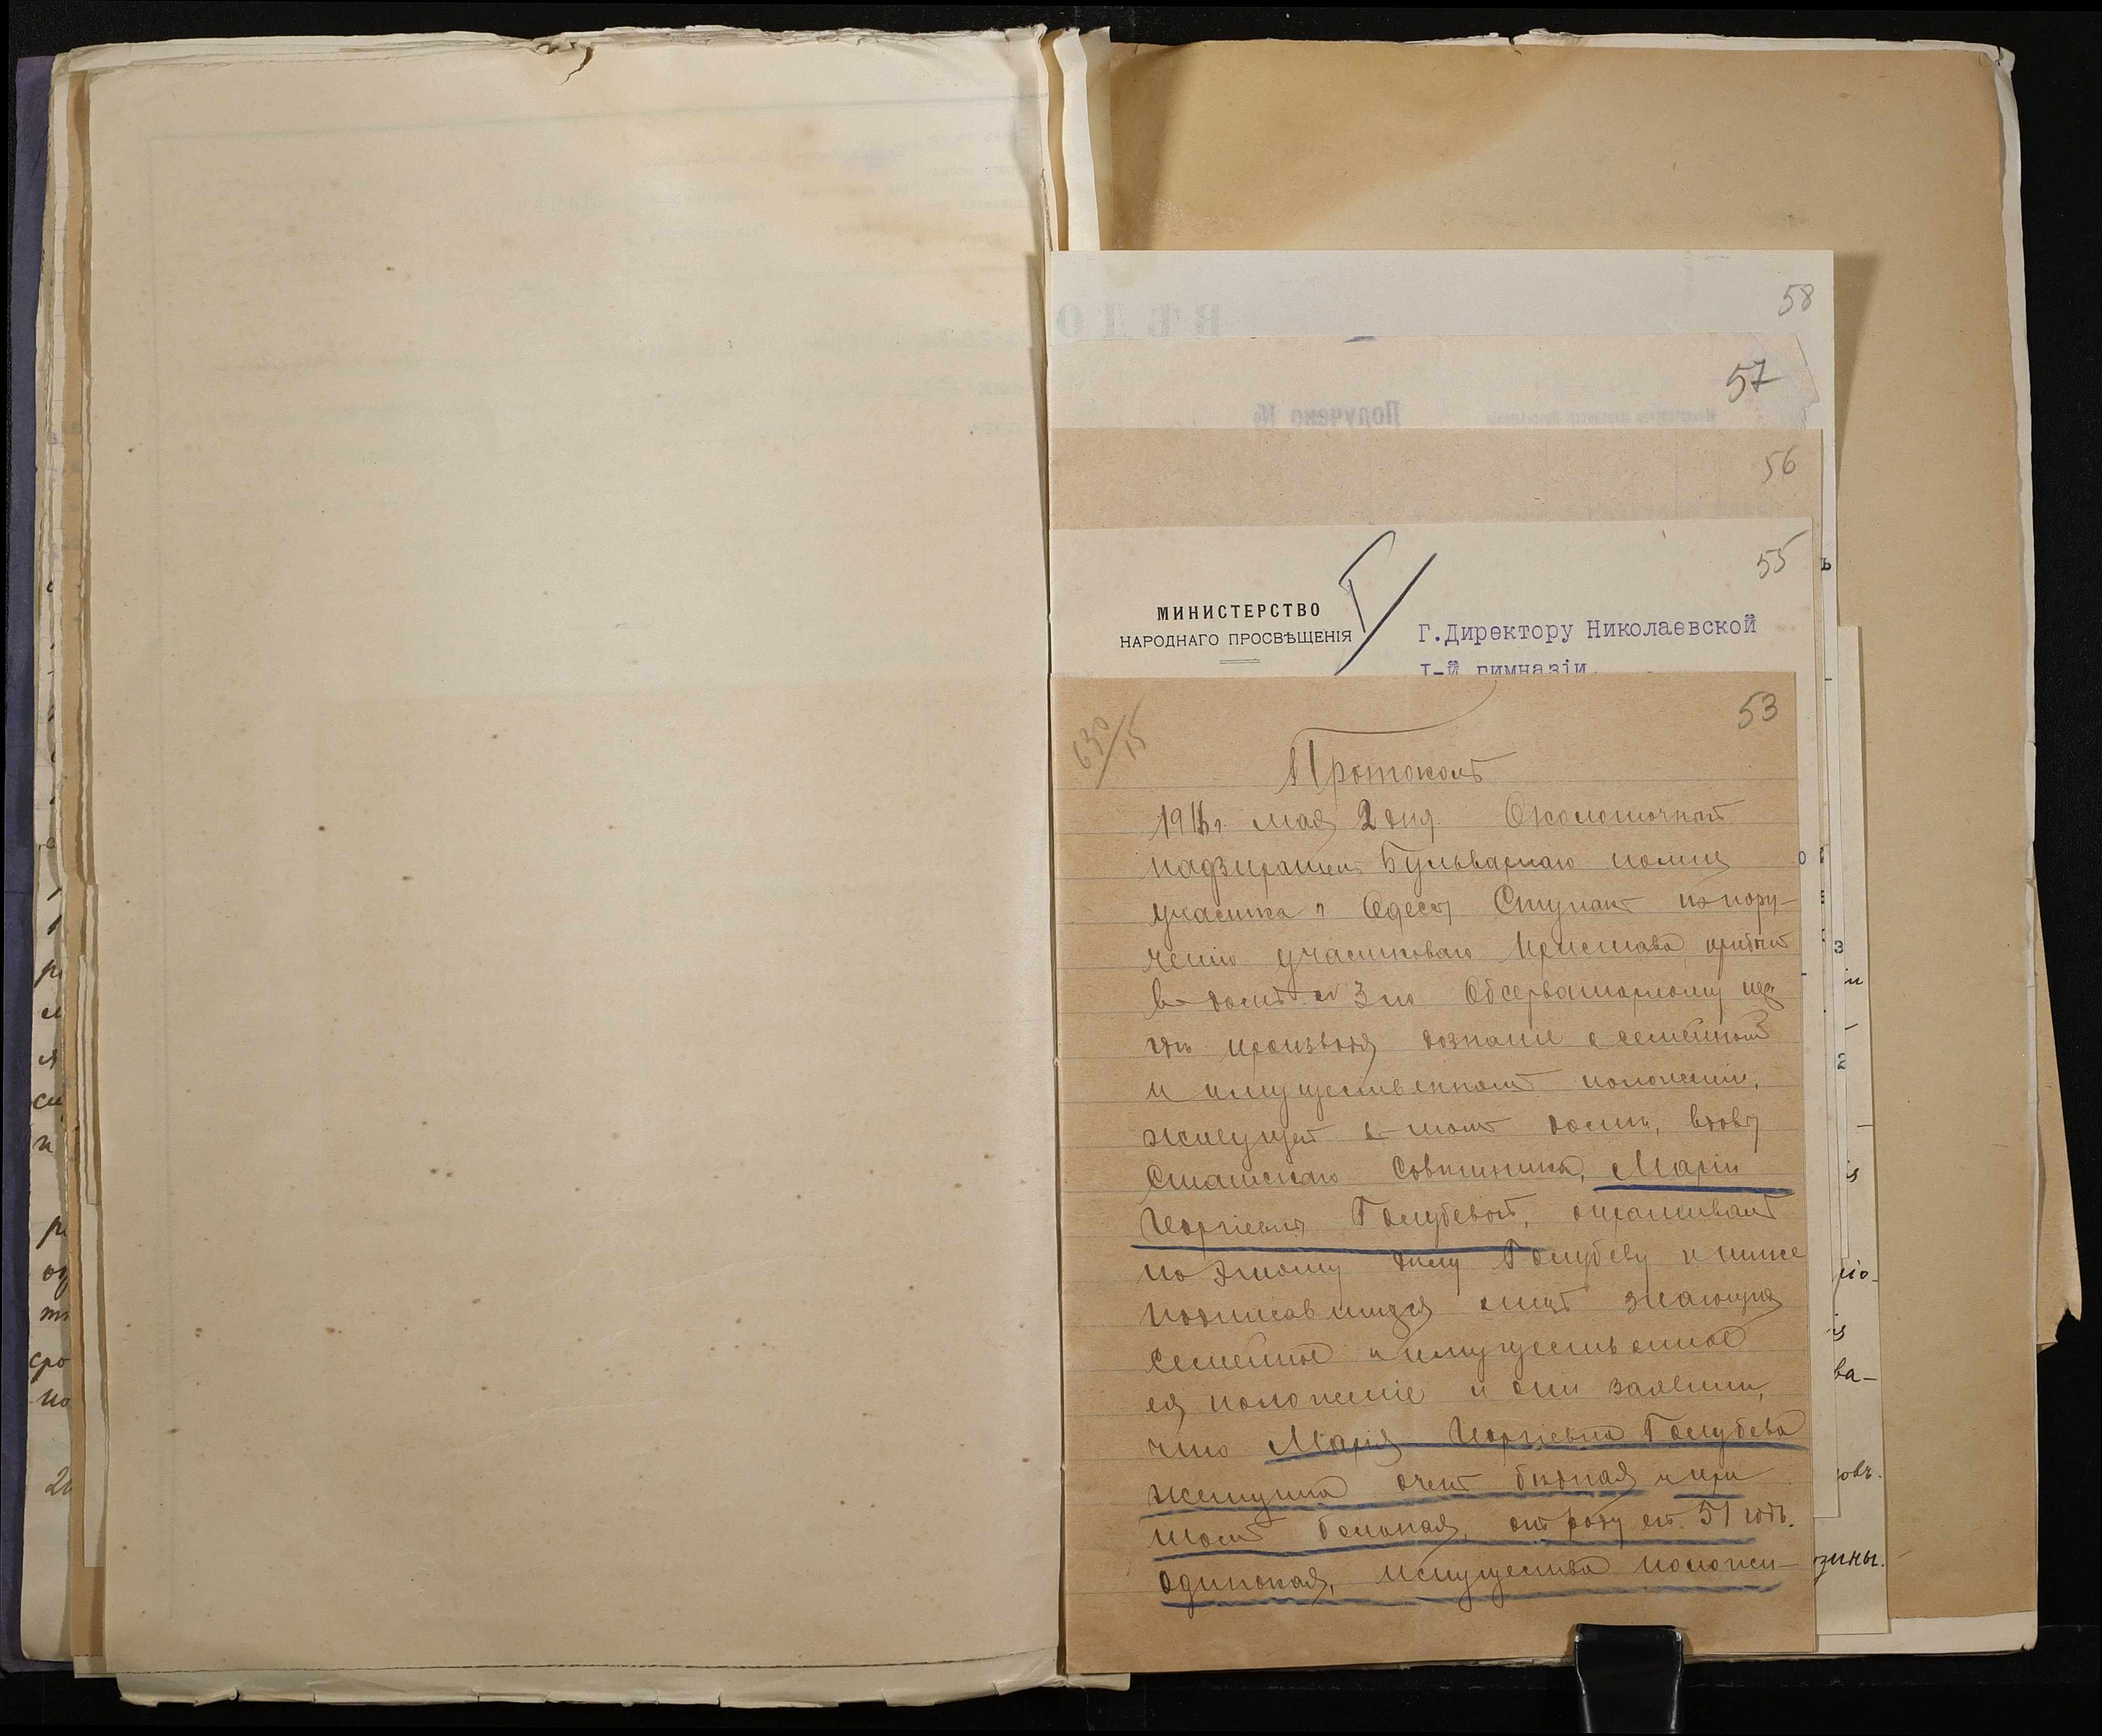 58
57
Получено №
56
55
МИНИСТЕРСТВО
НАРОДНАГО ПРОСВѢЩЕНІЯ
Г.Директору Николаевской
I-й гимназіи.
53
630/15
Протоколъ
мая 2 дня. Околоточный
надзиратель Бульварнаго полиц
участка г Одессы Ступакъ по пору-
ченію участковаго Пристава, прибылъ
въ домъ № 3 по Обсерваторному пер
гдѣ производя дознаніе о семейномъ
и имущественномъ положеніи,
живущей въ томъ домѣ, вдовы
Статскаго Совѣтника, Маріи
Георгіевны Голубевой, опрашивалъ
по этому дѣлу Голубеву и ниже
подписавшихся лицъ знающихъ
семейное и имущественное
ея положеніе и они заявили,
что Марія Георгіевна Голубева
женщина очень бѣдная и при
томъ больная, отъ роду ей 51 годъ.
одинокая, имущества положи-